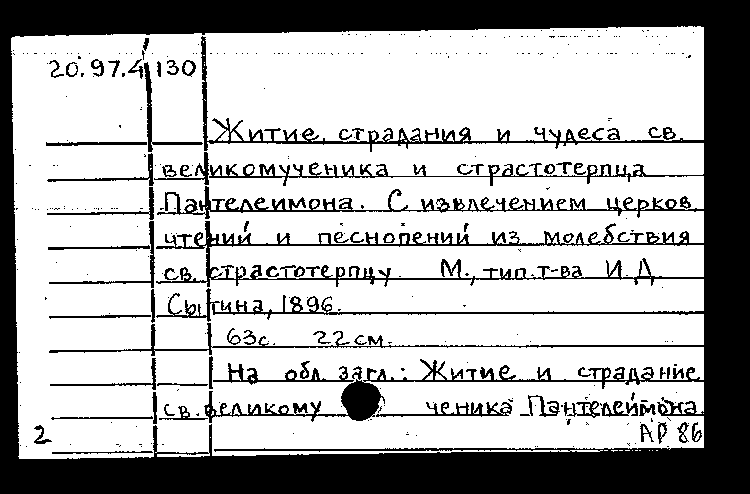 20.97.4 130
Житие, страдания и чудеса св.
великомученика и страстотерпца
Пантелеимона. С извлечением церков.
чтений и песнопений из молебствия
св. страстотерпцу. М., тип. т-ва И.Д.
Сытина, 1896.
63с. 22см.
На обл. загл.: Житие и страдание
св. великому ченика Пантелеймона.
2 АР 86